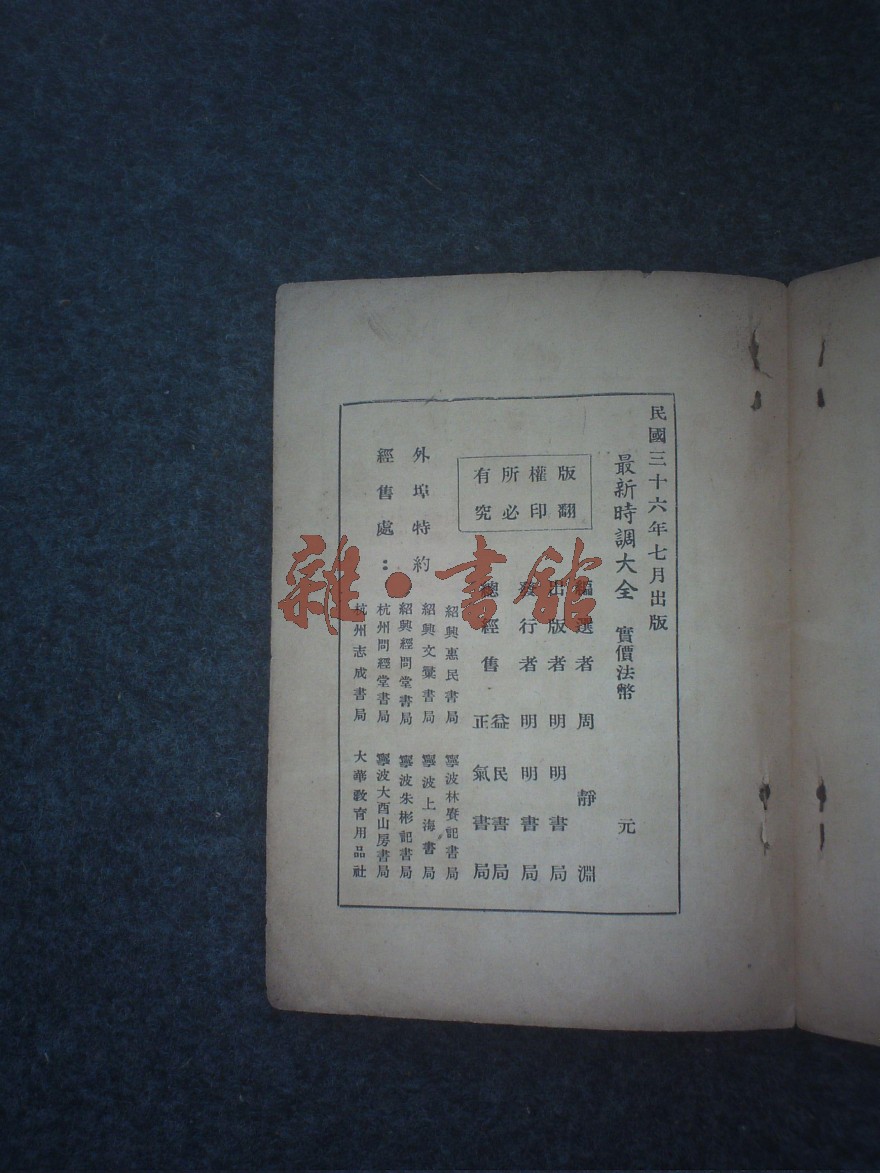 民國三十六年七月出版
最新時調大全 實價法幣 元
版權所有
翻印必究
編選者 周靜淵
出版者 明明書局
發行者 明明書局
總經售 益民書局
正氣書局
外埠特約
經售處：
紹興惠民書局 寧波林賡記書局
紹興文彙書局 寧波上海書局
紹興經問堂書局 寧波朱彬記書局
杭州問經堂書局 寧波大酉山房書局
杭州志成書局 大華教育用品社
雜·書館